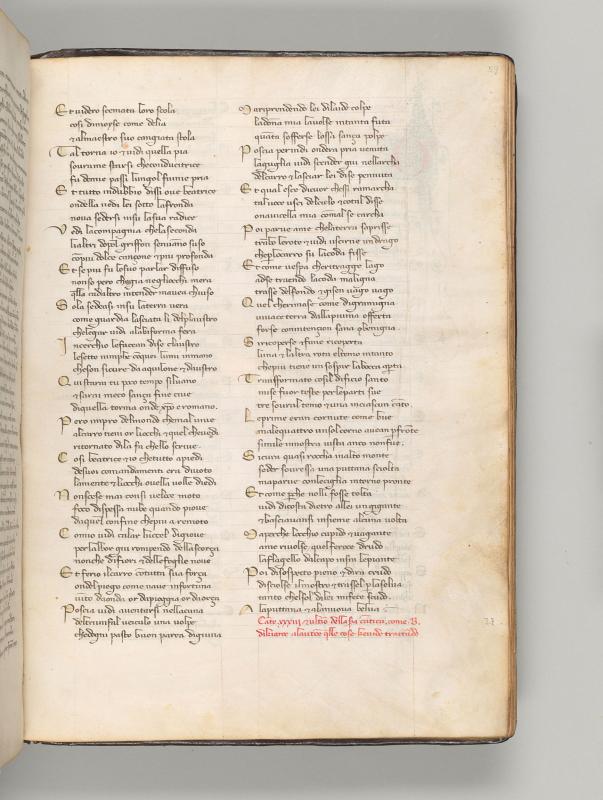 E t viddro scemata loro scola
cosi dimoyse come delia
& almaestro suo cangiata stola
T al torna io & vidi quella pia
sovra me starsi che conducitrice
fu demie passi lungol fiume pria
E t tutto indubbio dissi ove beatrice
ondella vedi lei sotto lafronda
nova sedersi insu lasua radice
V edi lacompagnia chelaseconda
lialtri depol griffon senvano suso
con piu dolce cançone & piu profonda
E t se piu fu losuo parlar diffuso
non so pero chegia negliocchi mera
quella cadaltro intender mavea chiuso
S ola sedeasi insu laterra vera
come guardia lasciata li delplaustro
che legar vidi alabiforma fera
I ncerchio lefacean dise claustro
lesette nimphe conquei lumi inmano
cheson sicure daquilone & daustro
Q ui sarai tu poco tempo silvano
& sarai meco sança fine cive
diquella roma onde xpo e romano
P ero inpro delmondo chemal vive
alcarro tieni or liocchi & quel chevedi
ritornato dila fa chello scrive
C osi beatrice & io chetutto apiedi
desuoi comandamenti era divoto
lamente & liocchi ovella volle diedi
N on scese mai consi veloce moto
foco dispessa nube quando piove
daquel confine chepiu a remoto
C omio vidi calar luccel digiove
perlalbor giu rompendo dellascorça
nonche difiori & dellefoglie nove
E t ferio ilcarro contutta sua força
ondel piego come nave infortuna
vinta daonda or dapoggia or daorça
P oscia vidi aventarsi nellacuna
deltriunfal veiculo una volpe
chedogni pasto buon parea digiuna
M a riprendendo lei dilaide colpe
ladonna mia lavolse intanta futa
quanta sofferse lossa sança polpe
P oscia perindi ondera pria venuta
laguglia vidi scender giu nellarcha
delcarro & lasciar lei dise pennuta
E t qual esce dicuor chessi ramarcha
tal voce usci delcielo & cotal disse
o navicella mia comal se carcha
P oi parve ame chelaterra saprisse
tralo lerote & vidi uscirne un drago
cheperlocarro su lacoda fisse
E t come vespa cheritraggie lago
adse traendo lacoda maligna
trasse delfondo & gisen vago vago
Q uel cherimase come digramigna
vivace terra dallapiuma offerta
forse conintençion sana & benigna
S i ricoperse & fune ricoperta
luna & laltra rota eltemo intanto
chepiu tiene un sospir labocca aperta
T ransformato cosil dificio santo
mise fuor teste perleparti sue
tre sovral temo & una inciascun canto
L e prime eran cornute come bue
malequattro un sol corno avean per fronte
simile mostro visto anco nonfue
S icura quasi roccha inalto monte
seder sovressa una puttana sciolta
maparve conleciglia intorno pronte
E t come perche nolli fosse tolta
vidi dicosta dietro allei un gigante
& basciavansi insieme alcuna volta
M a perche lecchio cupido & vagante
ame rivolse quel feroce drudo
laflagello dalcapo insin lepiante
P oi disospecto pieno & dira crudo
disciolse ilmostro & trassel plaselva
tanto chesol dilei mifece scudo
A laputtana & alanuova belva